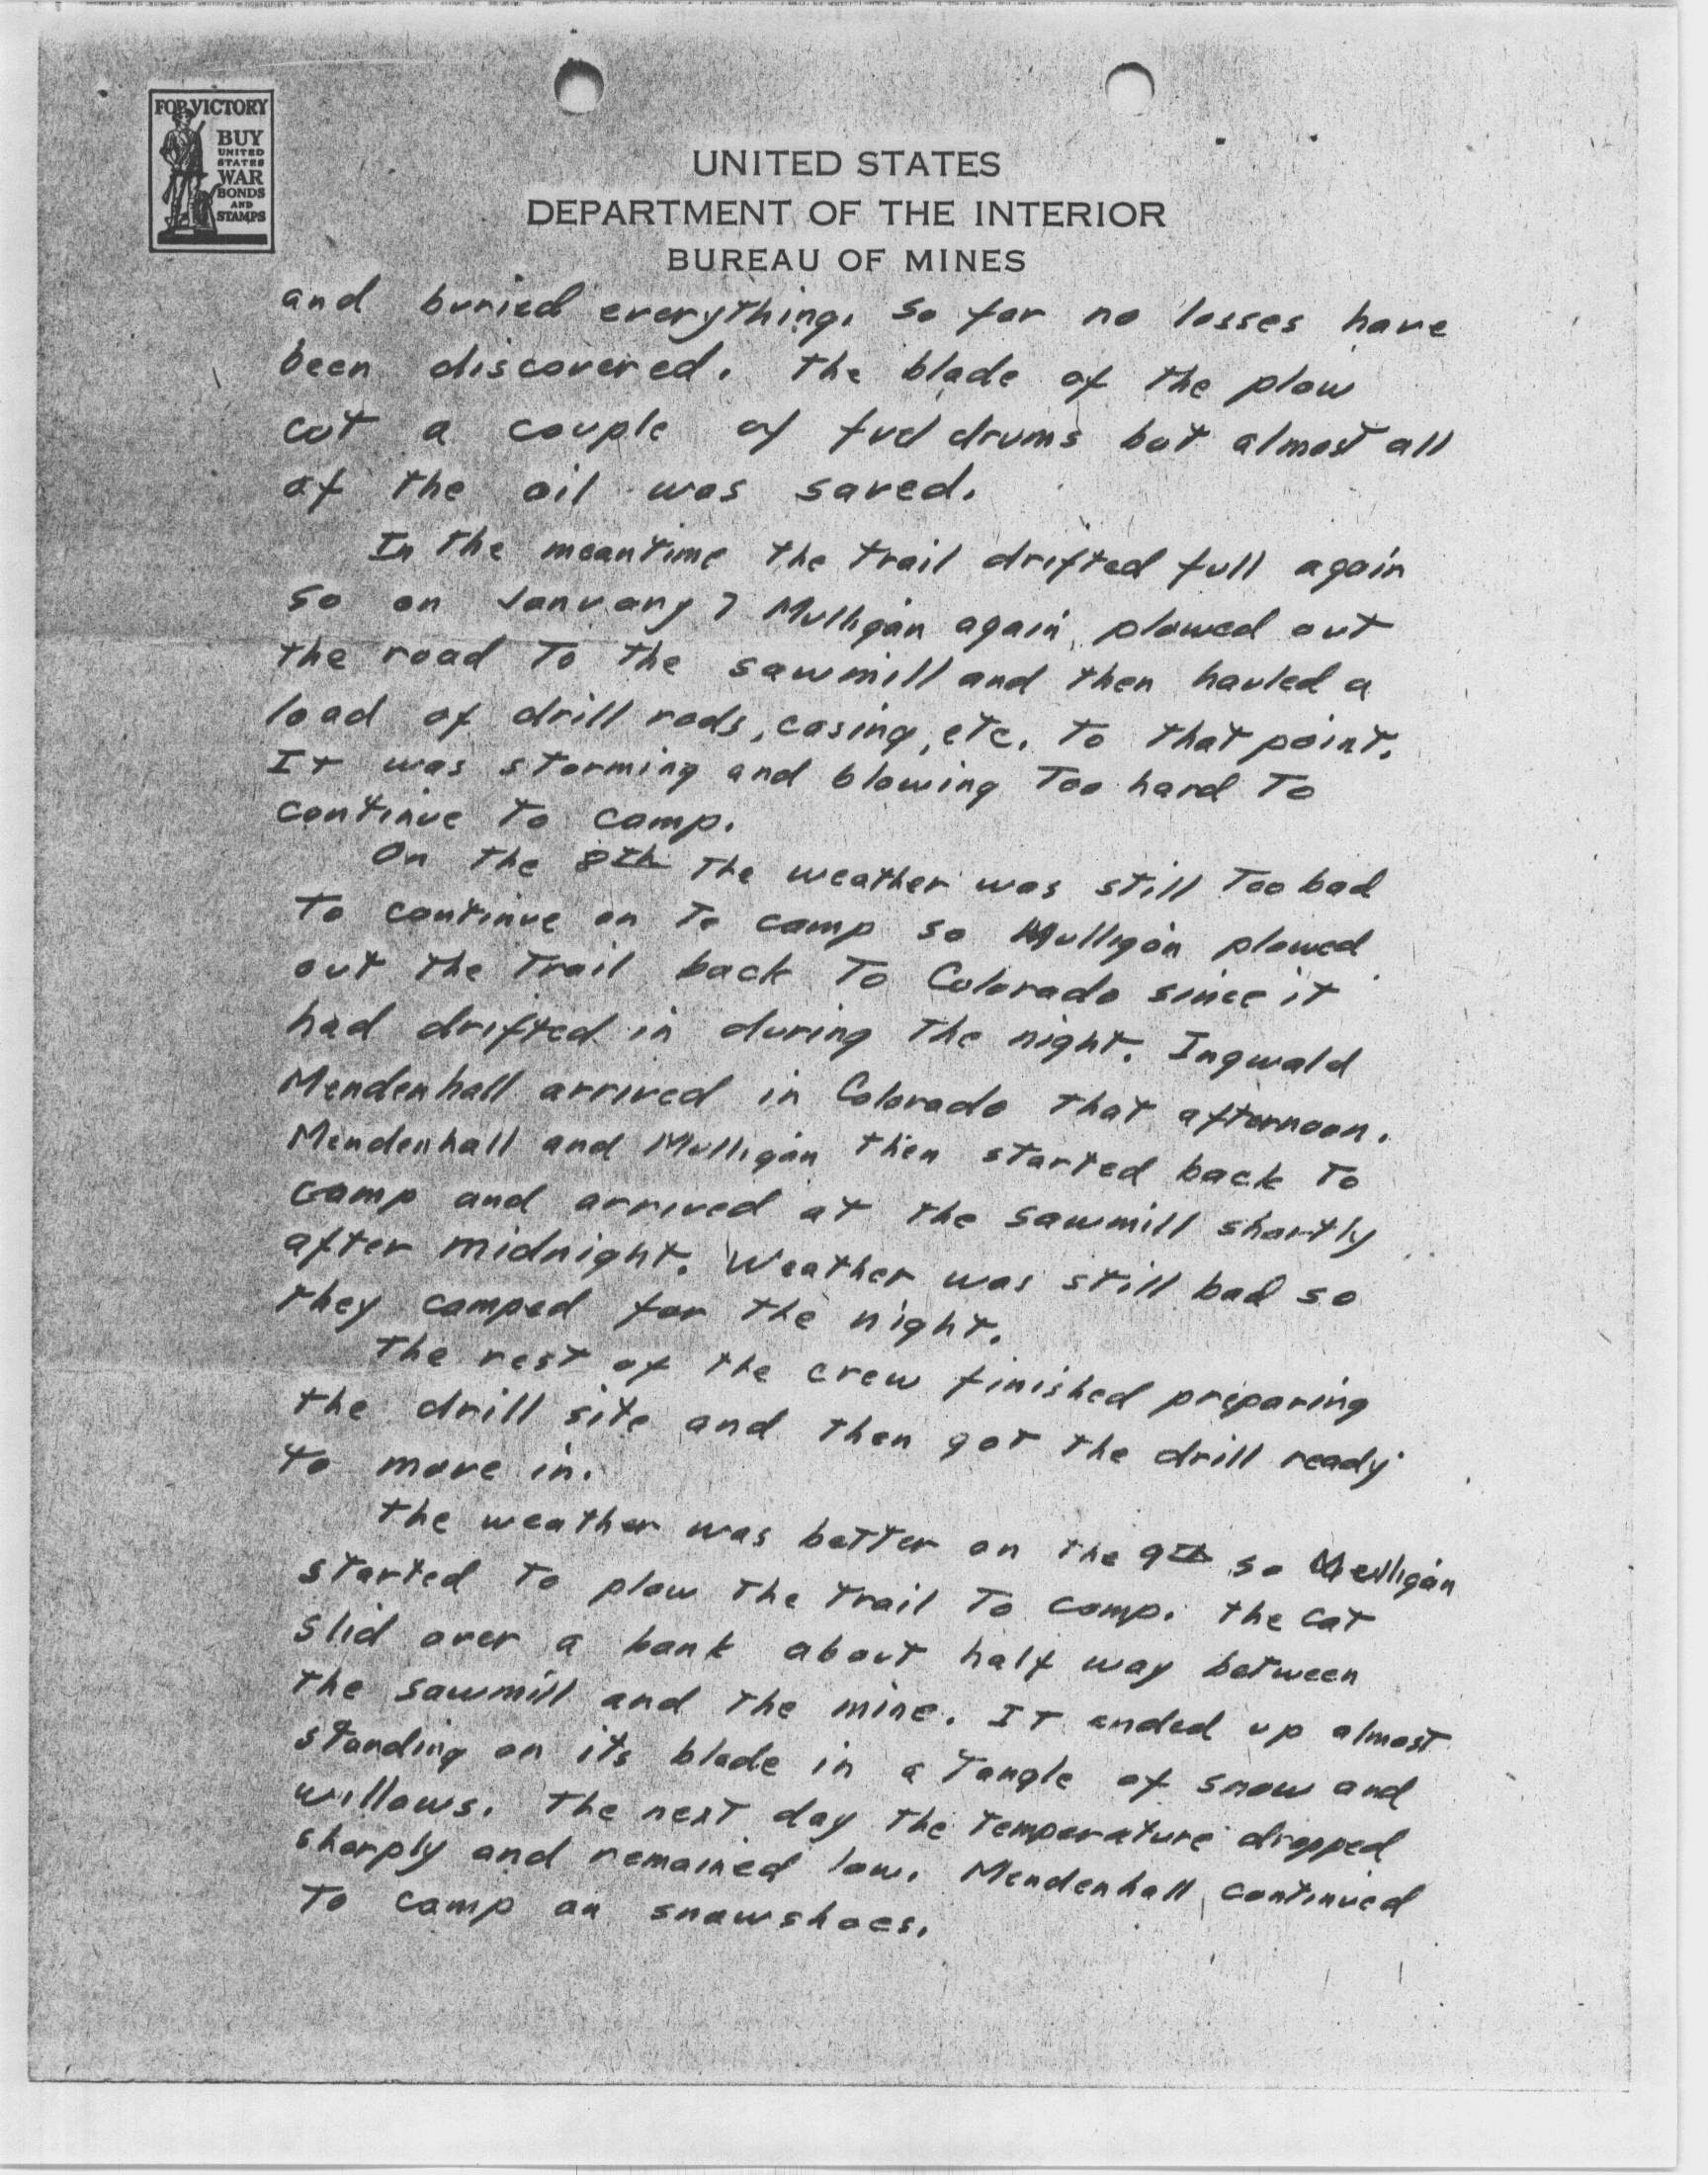 FOR VICTORY
BUY
UNITED
STATES
WAR
BONDS
AND
STAMPS
UNITED STATES
DEPARTMENT OF THE INTERIOR
BUREAU OF MINES
and buried everything. So far no losses have
been discovered. The blade of the plow
cut a couple of fuel drums but almost all
of the oil was saved.
In the meantime the trail drifted full again
so on January 7 Mulligan again plowed out
the road to the sawmill and then hauled a
load of drill rods, casing, etc. to that point.
It was storming and blowing too hard to
continue to camp.
On the 8th the weather was still too bad
to continue on to camp so Mulligan plowed
out the trail back to Colorado since it
had drifted in during the night. Ingwald
Mendenhall arrived in Colorado that afternoon.
Mendenhall and Mulligan then started back to
camp and arrived at the sawmill shortly
after midnight. Weather was still bad so
they camped for the night.
The rest of the crew finished preparing
the drill site and then got the drill ready
to move in.
The weather was better on the 9th so Mulligan
started to plow the trail to camp. The cat
slid over a bank about half way between
the sawmill and the mine. It ended up almost
standing on its blade in a tangle of snow and
willows. The next day the temperature dropped
sharply and remained low. Mendenhall continued
to camp on snowshoes.